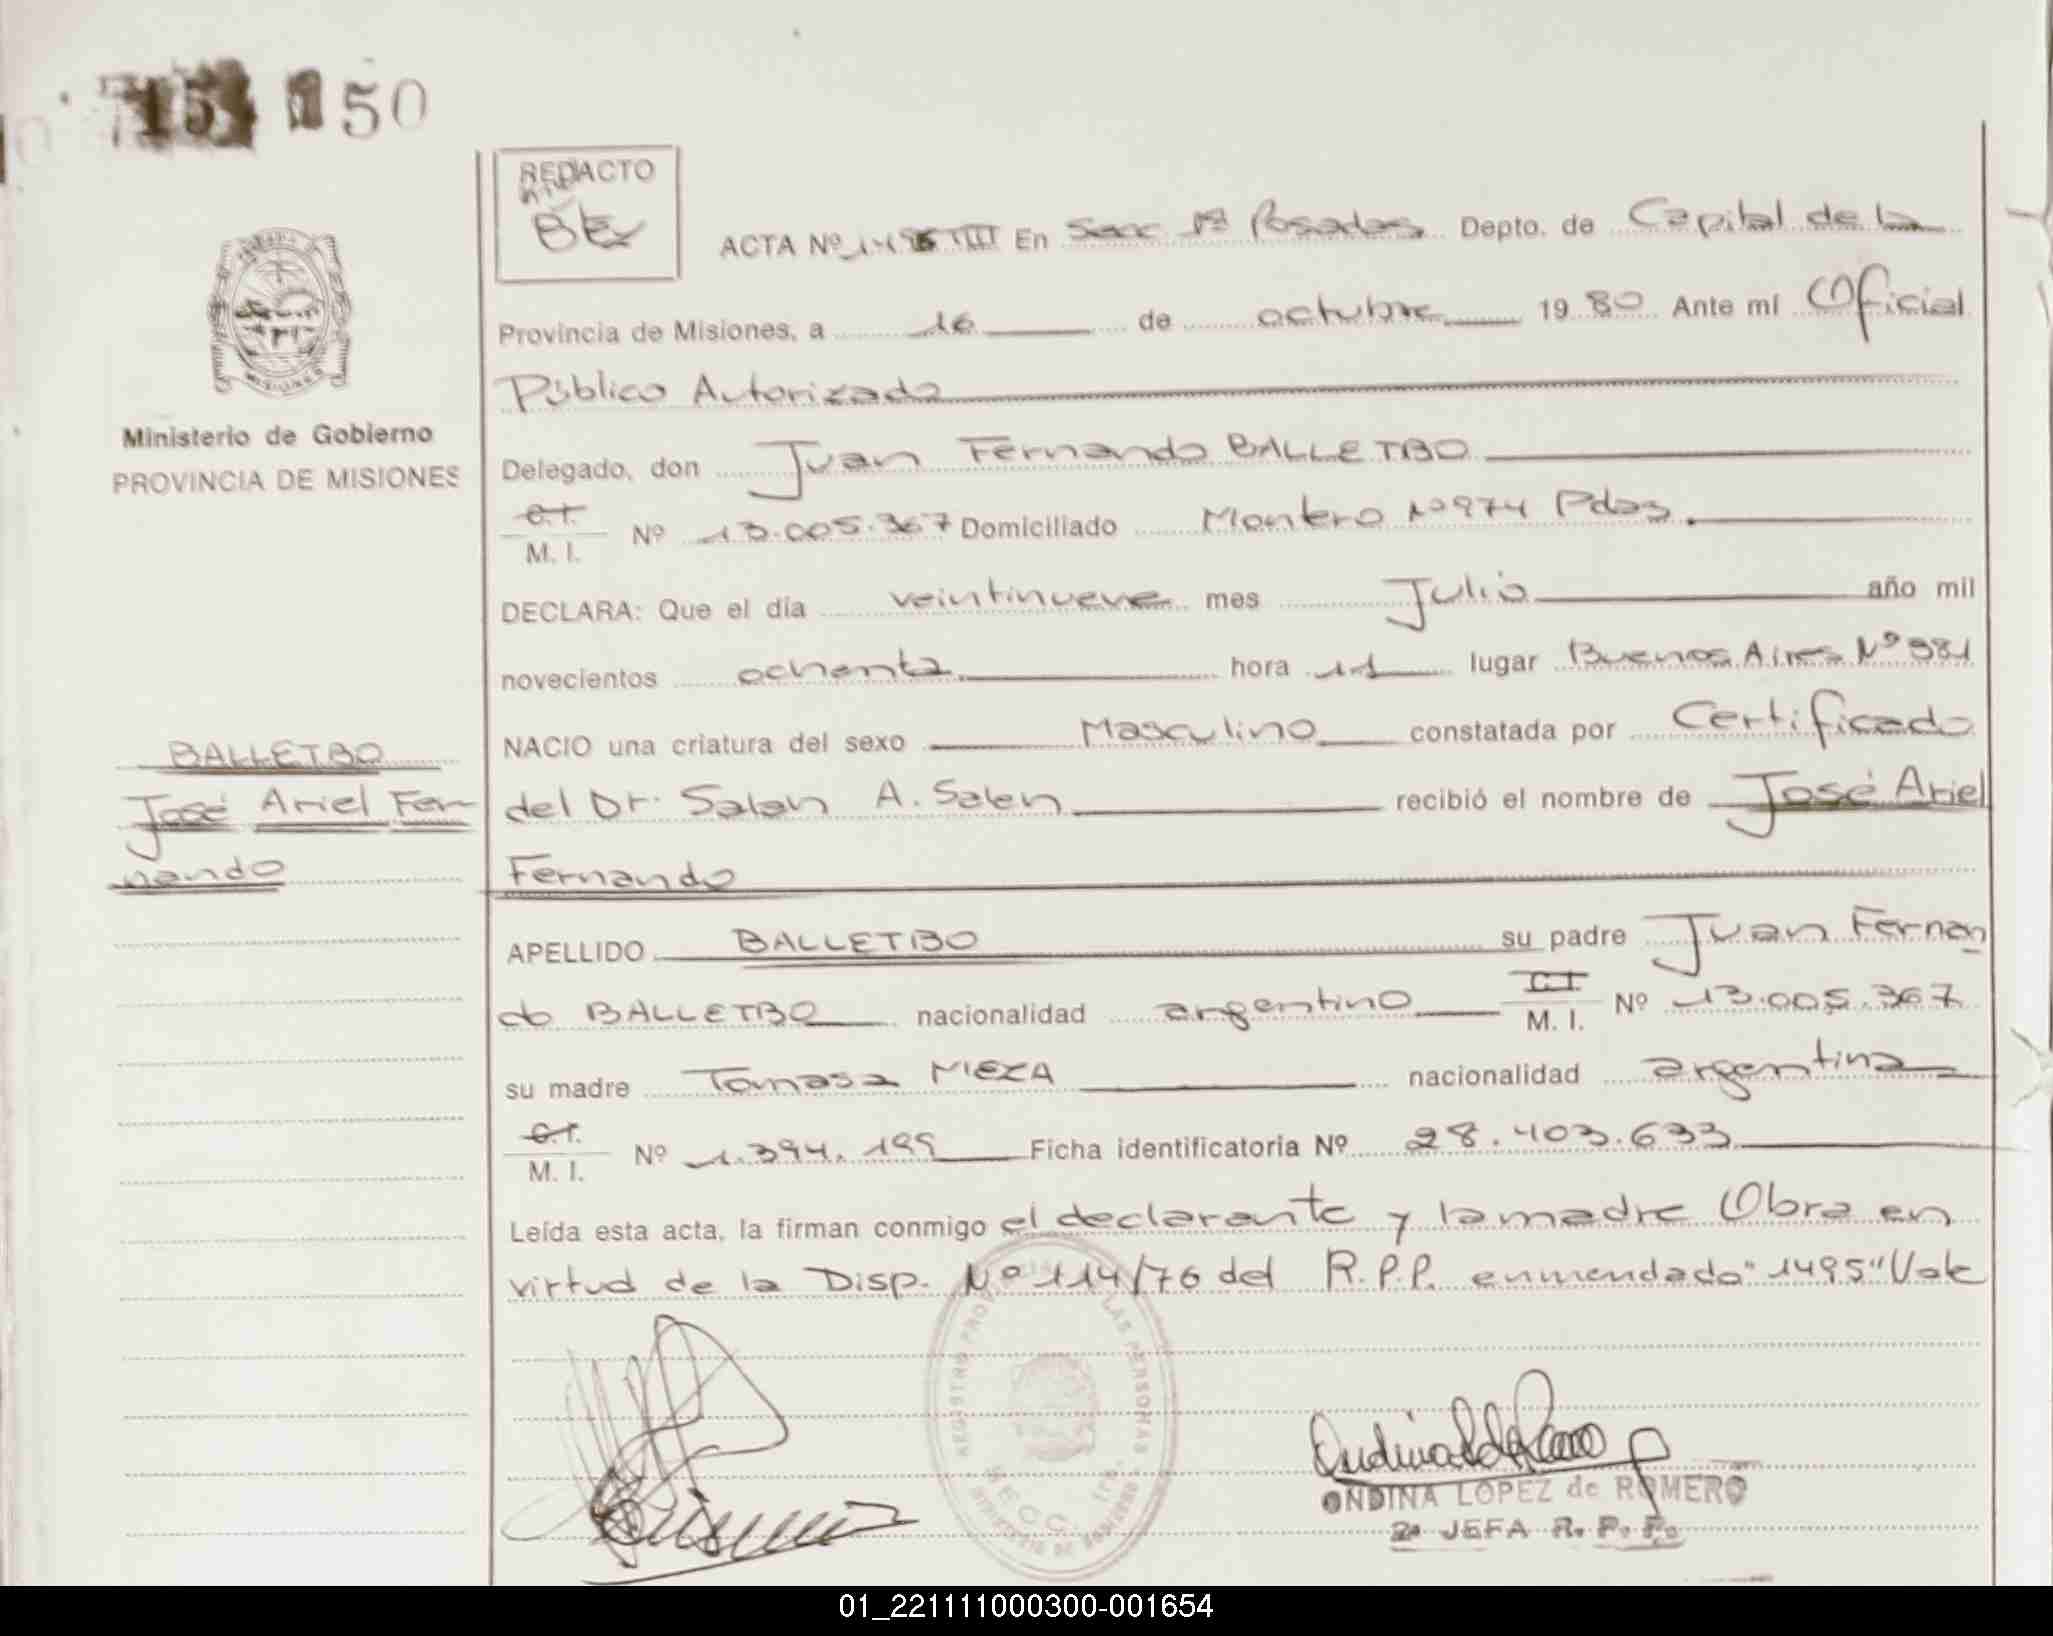 150
REDACTO
ACTA Nº 1495 TIII En Secc 1ª Posadas Depto. de Capital de la
Provincia de Misiones, a 16 de octubre 1980 Ante mí Oficial
Público Autorizado
Ministerio de Gobierno
PROVINCIA DE MISIONES
Delegado, don Juan Fernando BALLETBO
C.I.
M. I. Nº 13.005.367 Domiciliado Montero Nº 974 Pdas.
DECLARA: Que el día veintinueve mes Julio año mil
novecientos ochenta hora 11 lugar Buenos Aires Nº 981
NACIO una criatura del sexo Masculino constatada por Certificado
BALLETBO
José Ariel Fer
nando
del Dr. Salen A. Salen recibió el nombre de José Ariel
Fernando
APELLIDO BALLETBO su padre Juan Fernan
do BALLETBO nacionalidad argentino C.I. M. I. Nº 13.005.367
su madre Tomasa MEZA nacionalidad argentina
C.I.
M. I. Nº 1.394.199 Ficha identificatoria Nº 28.403.633
Leída esta acta, la firman conmigo el declarante y la madre Obra en
virtud de la Disp. Nº 114/76 del R.P.P. enmendado "1495" Vale
ONDINA LOPEZ de ROMERO
2ª JEFA R. P. P.
01_221111000300-001654